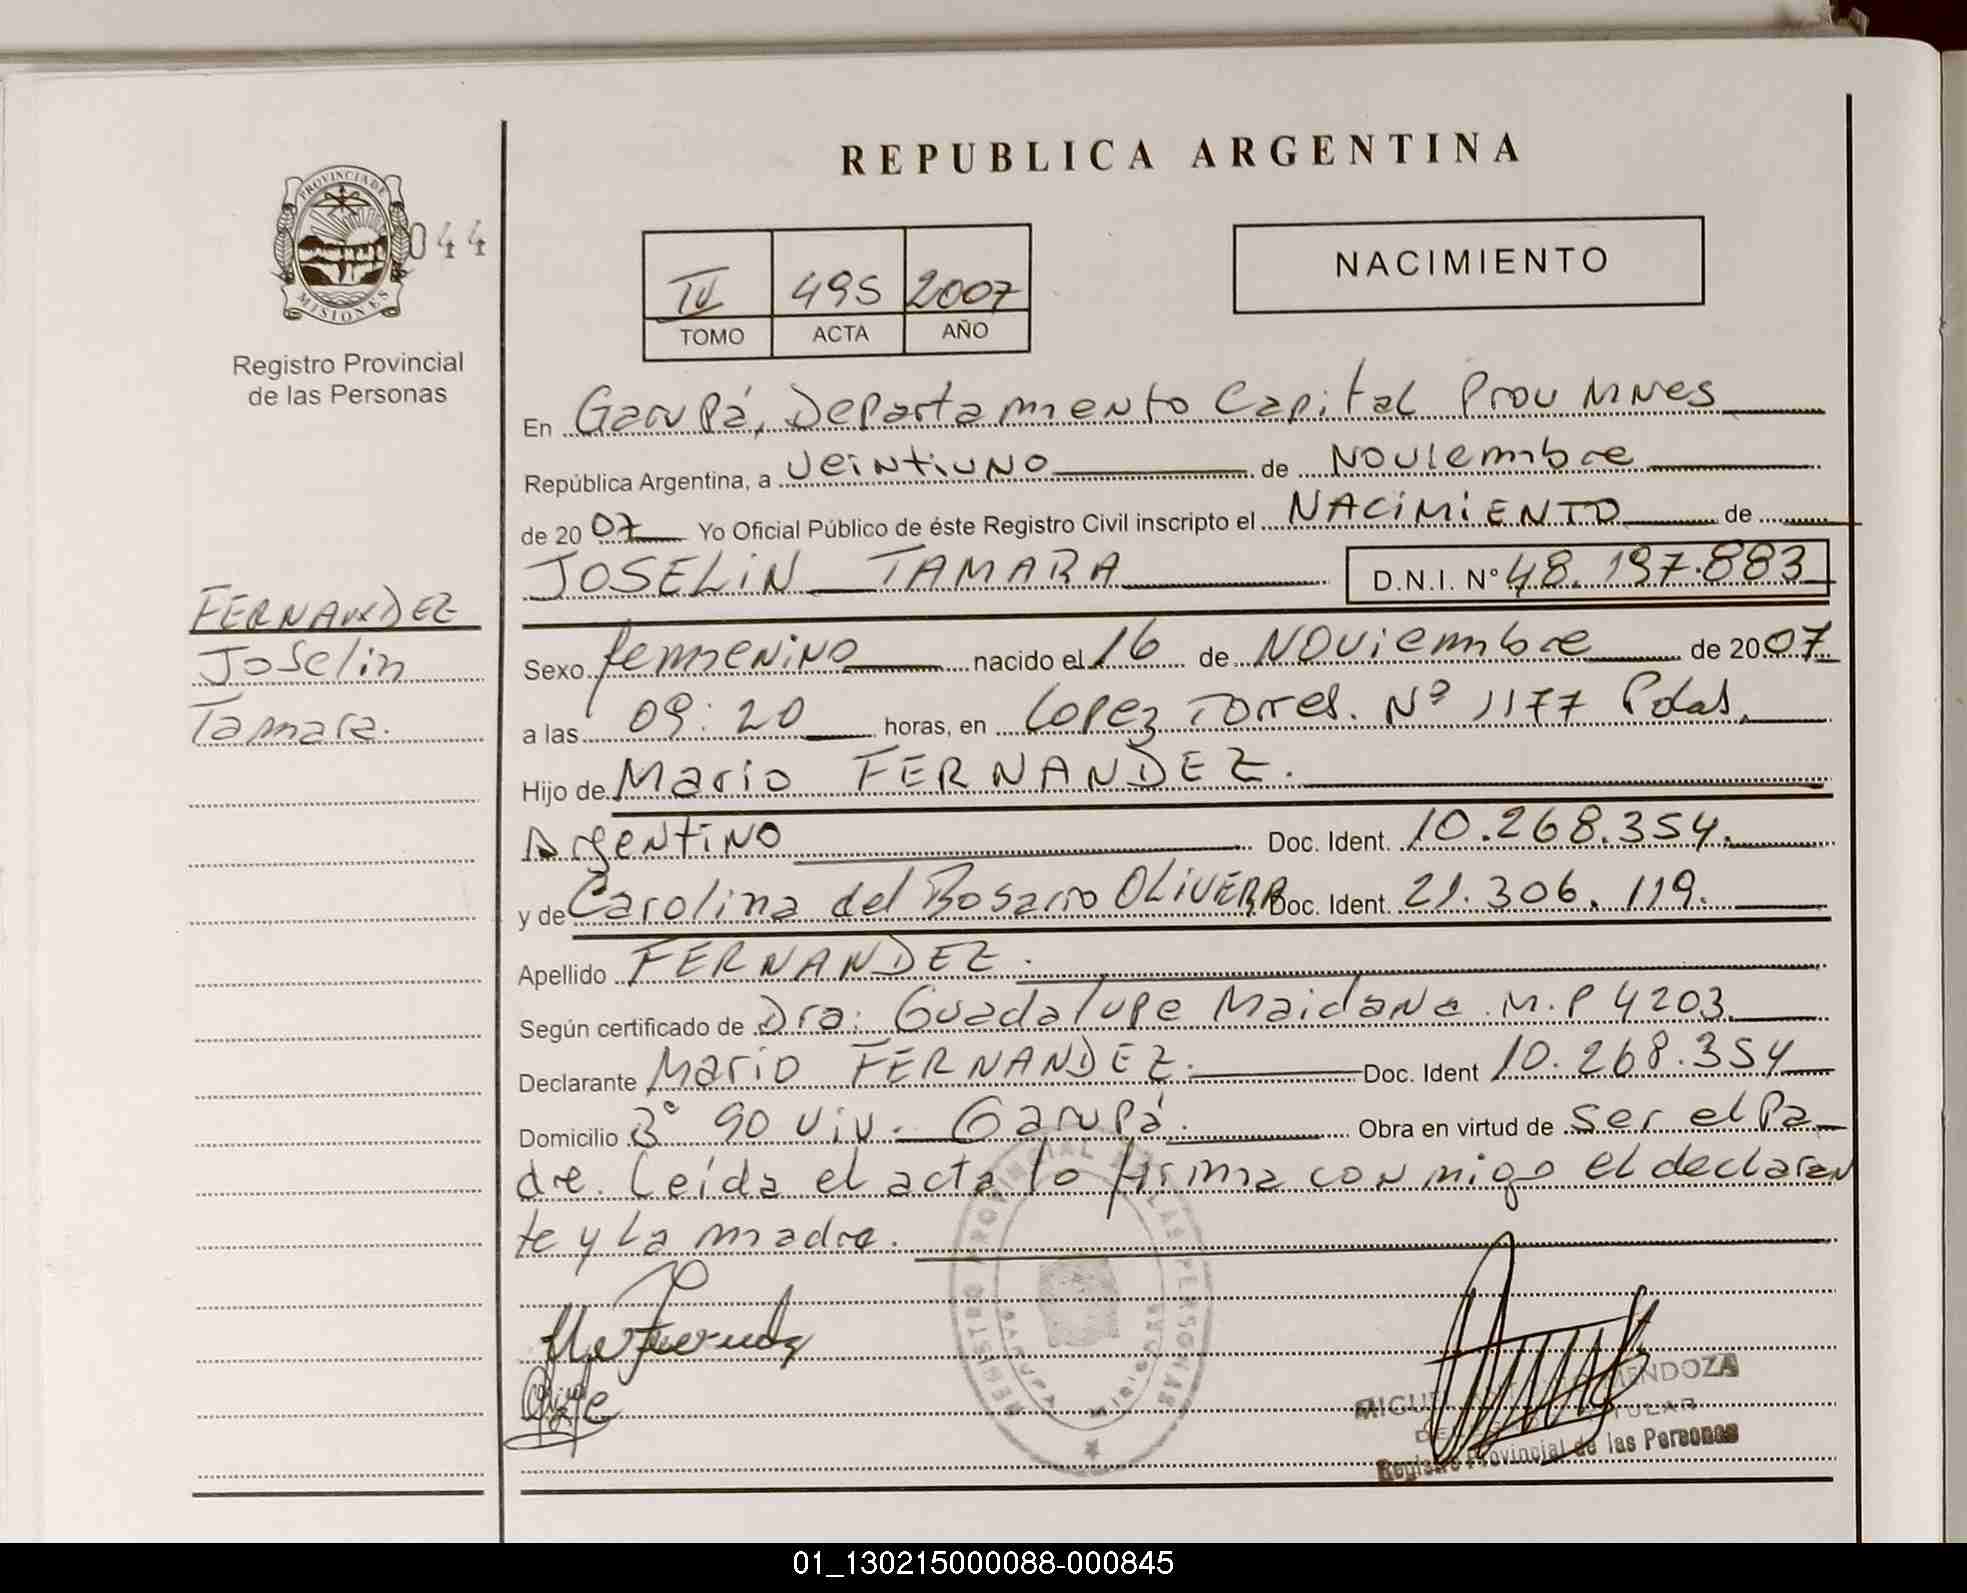 REPUBLICA ARGENTINA
PROVINCIA DE
MISIONES
044
Registro Provincial
de las Personas
IV 495 2007
TOMO ACTA AÑO
NACIMIENTO
En Garupá, Departamento Capital Prov Mnes
República Argentina, a veintiuno de Noviembre
de 2007 Yo Oficial Público de éste Registro Civil inscripto el NACIMIENTO de
JOSELIN TAMARA D.N.I. Nº 48.197.883
FERNANDEZ
Joselin
Tamara.
Sexo femenino nacido el 16 de Noviembre de 2007
a las 09:20 horas, en Lopez Torres. Nº 1177 Pdas.
Hijo de Mario FERNANDEZ.
Argentino Doc. Ident. 10.268.354.
y de Carolina del Rosario OLIVERA Doc. Ident. 21.306.119.
Apellido FERNANDEZ.
Según certificado de Dra: Guadalupe Maidana M.P 4203.
Declarante Mario FERNANDEZ. Doc. Ident 10.268.354
Domicilio Bº 90 viv. Garupá. Obra en virtud de ser el Pa
dre. Leída el acta lo firma conmigo el declaran
te y la madre.
REGISTRO PROVINCIAL DE LAS PERSONAS
GARUPA Misiones
MENDOZA
TITULAR
Registro Provincial de las Personas
01_130215000088-000845